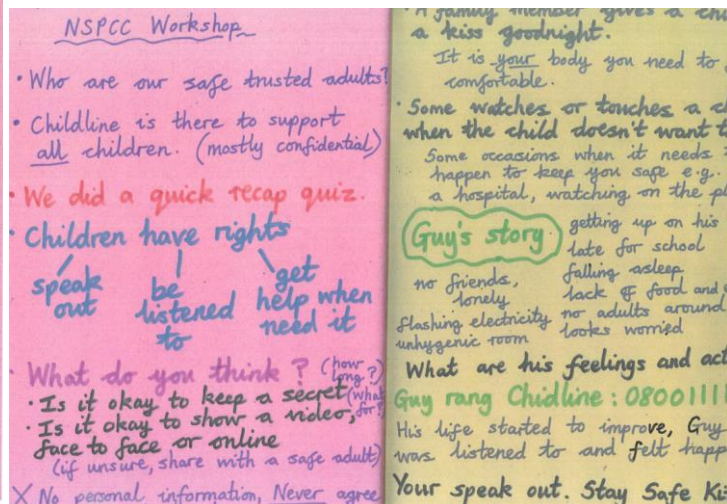 NSPCC Workshop
• Who are our safe trusted adults?
• Childline is there to support
all children. (mostly confidential)
• We did a quick recap quiz.
• Children have rights
speak out
be listened to
get help when need it
• What do you think? (how long?)
• Is it okay to keep a secret (what for?)
• Is it okay to show a video,
face to face or online
(if unsure, share with a safe adult)
X No personal information, Never agree
• A family member gives a
a kiss goodnight.
It is your body you need to
comfortable.
• Some watches or touches a
when the child doesn't want
Some occasions when it needs
happen to keep you safe e.g.
a hospital, watching on the
Guy's story
getting up on his
late for school
falling asleep
lack of food and
no adults around
looks worried
no friends,
lonely
flashing electricity
unhygenic room
What are his feelings and
Guy rang Chidline: 0800 1111
His life started to improve, Guy
was listened to and felt
Your speak out. Stay Safe